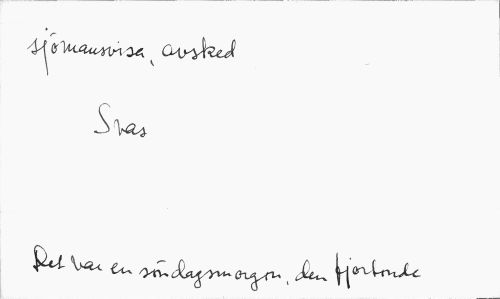 sjömansvisa, avsked
Svas
Det var en söndagsmorgon, den fjortonde